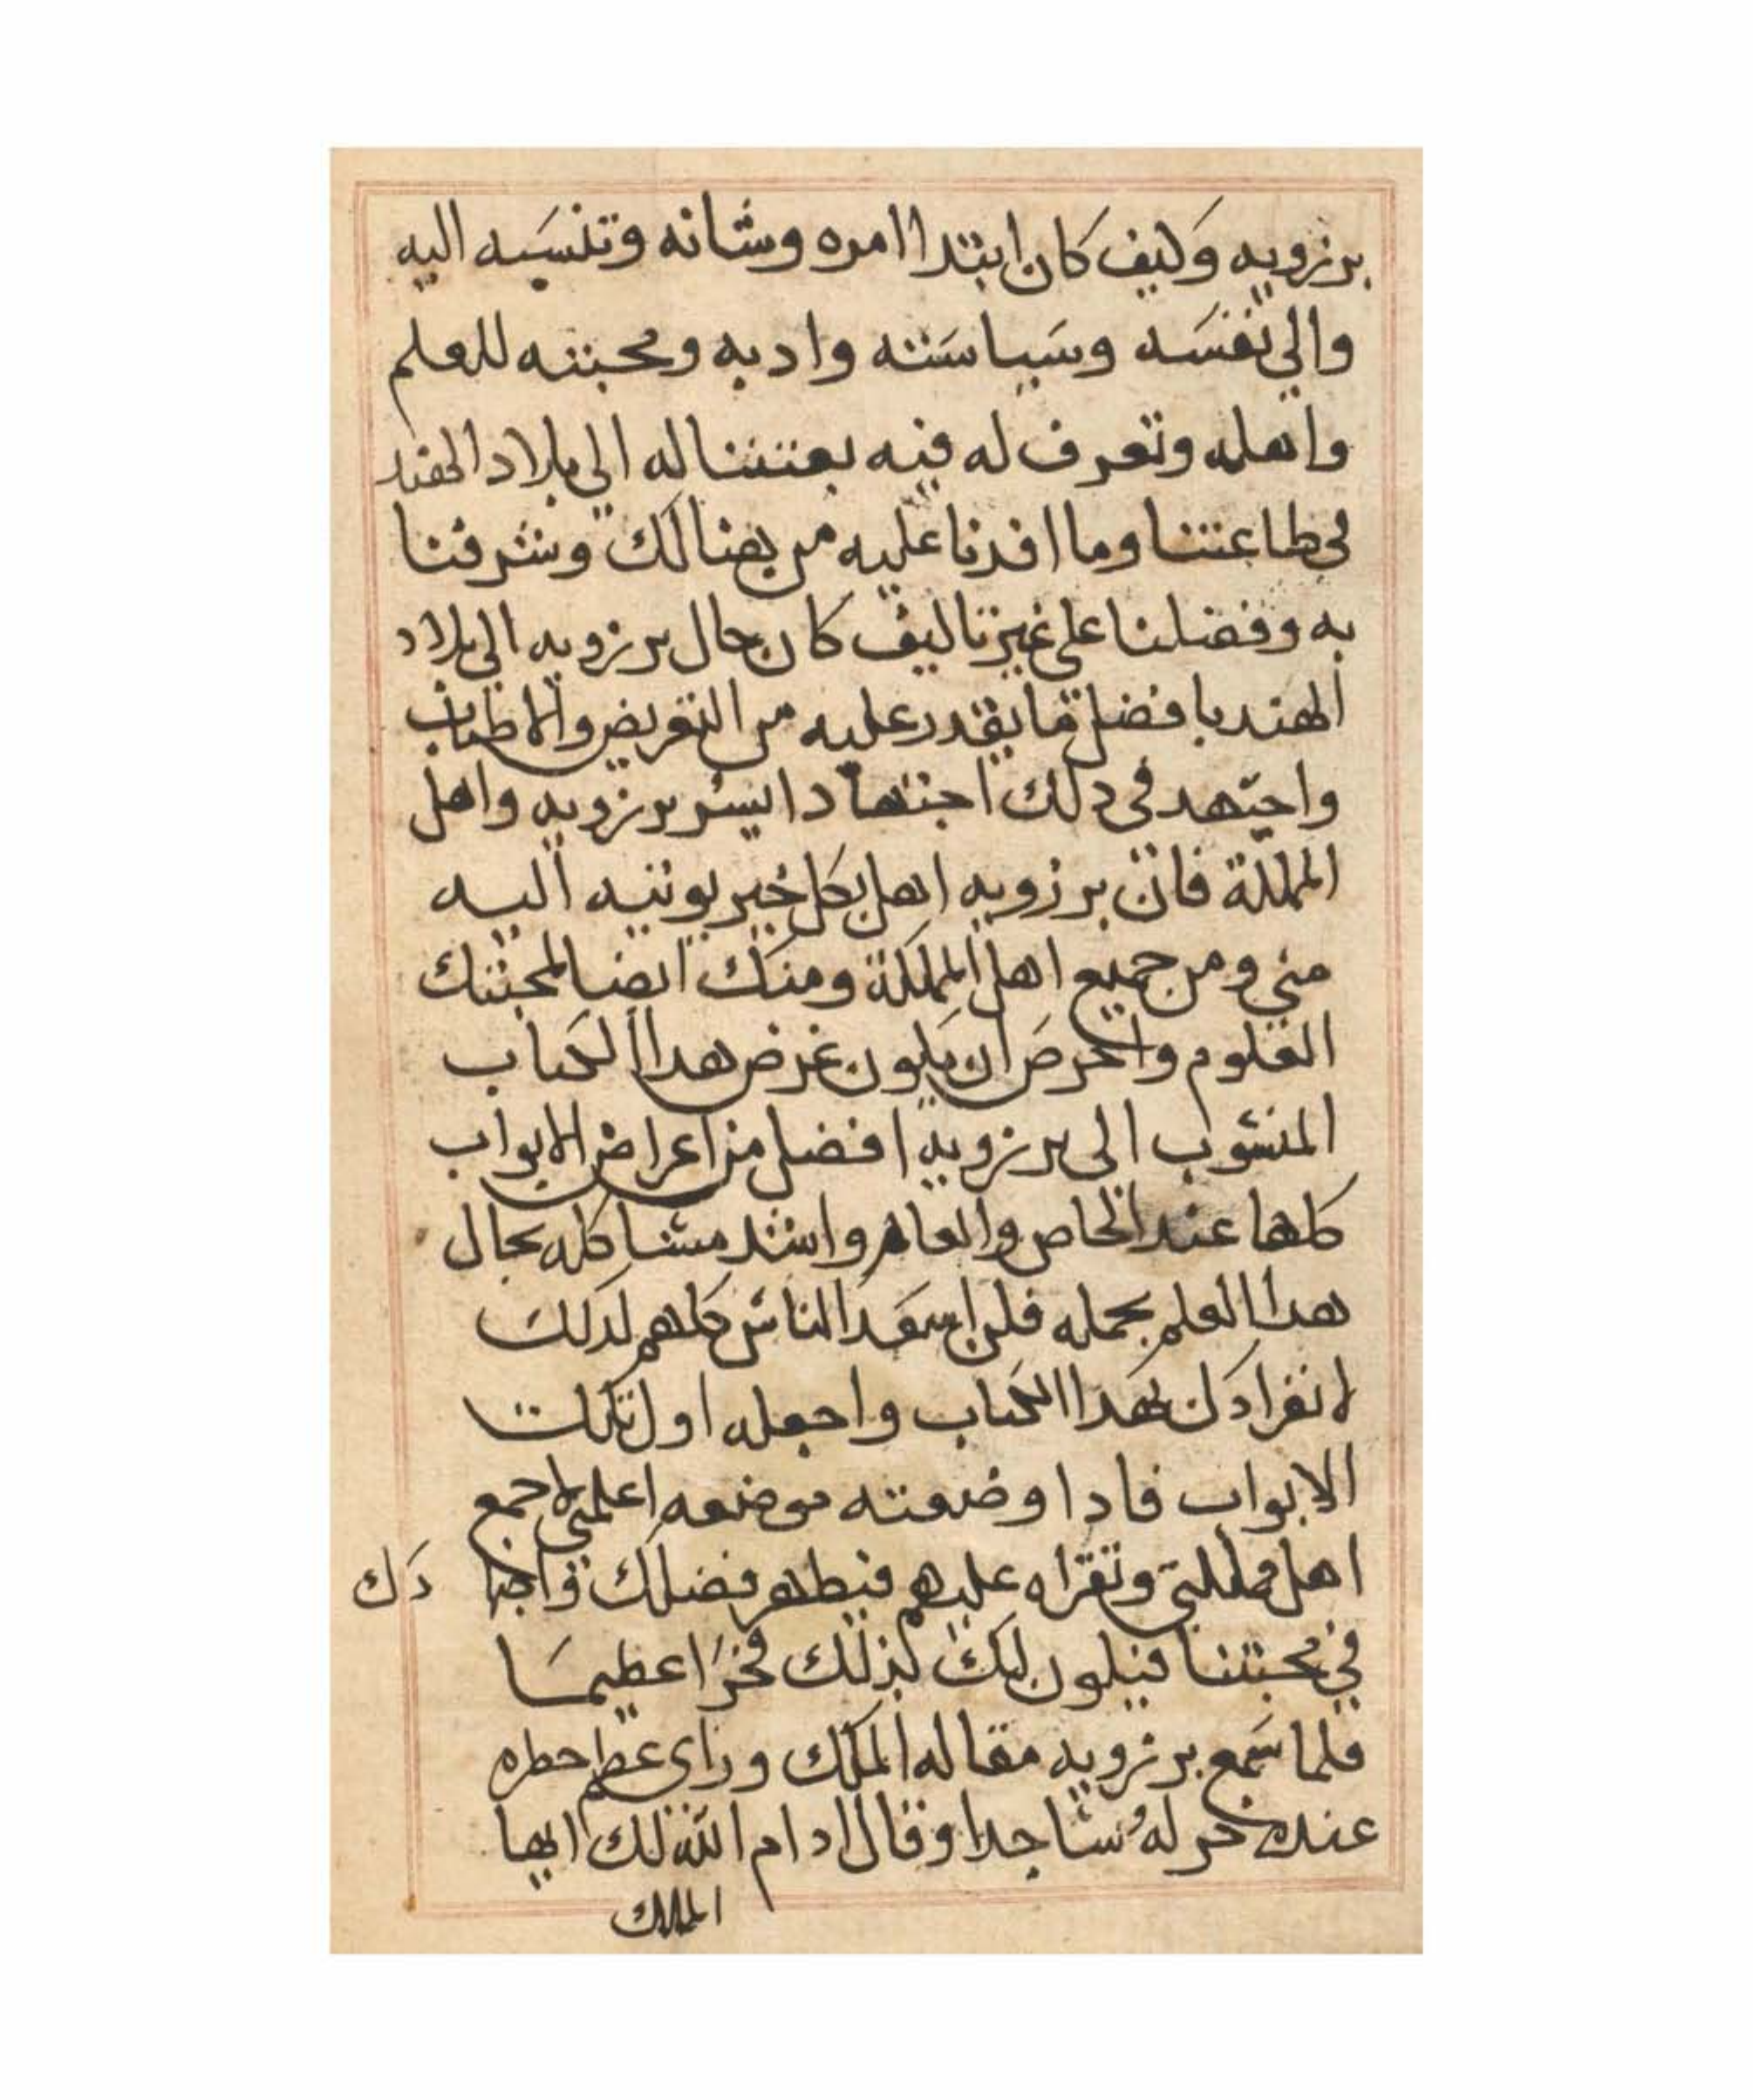 برزويه وكيف كان ابتدا امره وشانه وتنسبه اليه
والي نفسه وسياسته وادبه ومحبته للعلم
واهله وتعرف له فيه بعثتنا له الي بلاد الهند
في طاعتنا وما افدنا عليه من هنالك وشرفنا
به وفضلنا علي غيرنا ليف كان حال برزويه الي بلاد
الهند بافضل ما يقدر عليه من التقريض والاطناب
واجتهد في دلك اجتهادا ايسر برزويه واهل
المملكة فان برزويه اهل لكل خير يوتيه اليه
مني ومن جميع اهل المملكة ومنك ايضا لمحبتك
العلوم واحرص ان يكون غرض هدا الكتاب
المنسوب الى برزويه افضل من اعراض الابواب
كلها عند الخاص والعام واشد مشاكله بحال
هدا العلم بحمله فلن اسعد الناس كلهم لدلك
لانفرادك بهدا الكتاب واجعله اول تلك
الابواب فادا وضعته موضعه اعلمني لاجمع
اهل مملكتي وتقراه عليهم فيظهر فضلك واجتهادك
في محبتنا فيكون لك بذلك فخرا عظيما
فلما سمع برزويه مقاله الملك وراى عظم حطره
عنده خر له ساجدا وقال ادام الله لك ايها
الملك